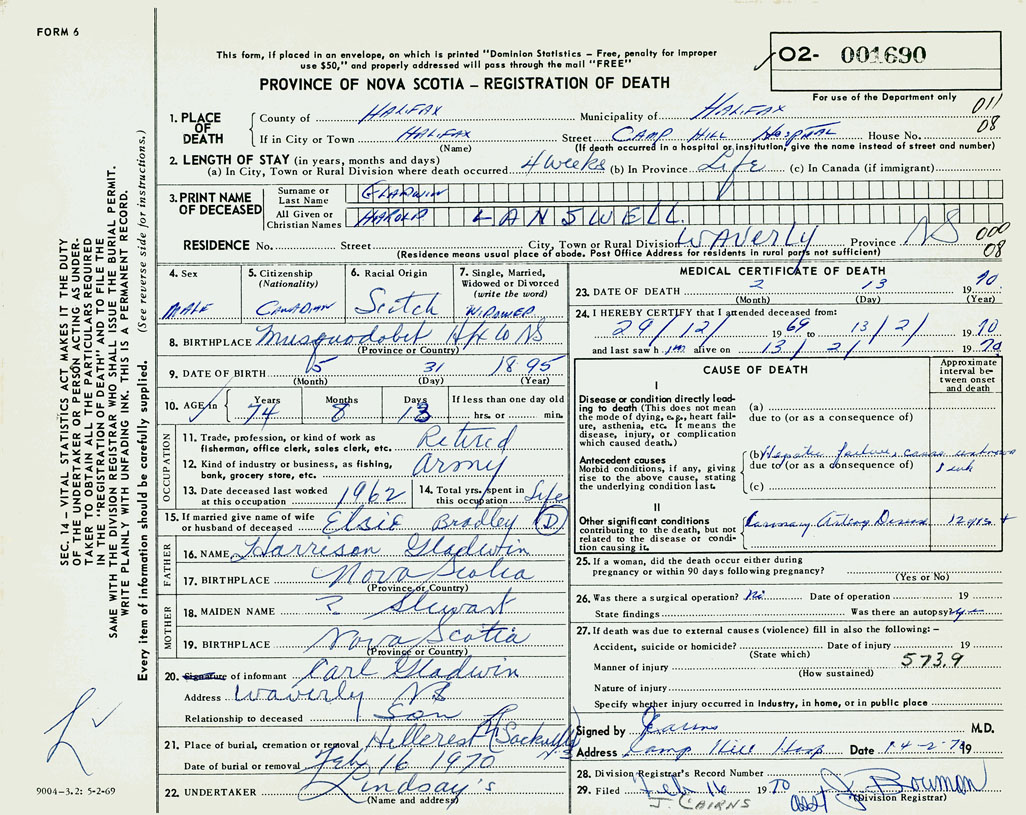 FORM 6
This form, if placed in an envelope, on which is printed "Dominion Statistics – Free, penalty for improper
use $50," and properly addressed will pass through the mail "FREE"
PROVINCE OF NOVA SCOTIA – REGISTRATION OF DEATH
02- 001690
For use of the Department only
SEC. 14 – VITAL STATISTICS ACT MAKES IT THE DUTY
OF THE UNDERTAKER OR PERSON ACTING AS UNDER-
TAKER TO OBTAIN ALL THE PARTICULARS REQUIRED
IN THE "REGISTRATION OF DEATH" AND TO FILE THE
SAME WITH THE DIVISION REGISTRAR WHO SHALL ISSUE THE BURIAL PERMIT.
WRITE PLAINLY WITH UNFADING INK. THIS IS A PERMANENT RECORD.
Every item of information should be carefully supplied. (See reverse side for instructions.)
9004–3.2: 5-2-69
1. PLACE OF DEATH
County of HALIFAX Municipality of HALIFAX 011
If in City or Town HALIFAX Street CAMP HILL HOSPITAL House No. 08
(Name) (If death occurred in a hospital or institution, give the name instead of street and number)
2. LENGTH OF STAY (in years, months and days)
(a) In City, Town or Rural Division where death occurred 4 Weeks (b) In Province Life (c) In Canada (if immigrant)
3. PRINT NAME OF DECEASED
Surname or Last Name GLADWIN
All Given or Christian Names HAROLD LANSWELL
RESIDENCE No. Street City, Town or Rural Division WAVERLY Province NS 000
(Residence means usual place of abode. Post Office Address for residents in rural parts not sufficient) 08
4. Sex MALE
5. Citizenship (Nationality) CANADIAN
6. Racial Origin Scotch
7. Single, Married, Widowed or Divorced (write the word) WIDOWER
8. BIRTHPLACE Musquodobit Hfx Co NS
(Province or Country)
9. DATE OF BIRTH 5 31 1895
(Month) (Day) (Year)
10. AGE in Years 74 Months 8 Days 13 If less than one day old hrs. or min.
OCCUPATION
11. Trade, profession, or kind of work as fisherman, office clerk, sales clerk, etc. Retired
12. Kind of industry or business, as fishing, bank, grocery store, etc. Army
13. Date deceased last worked at this occupation 1962
14. Total yrs. spent in this occupation Life
15. If married give name of wife or husband of deceased Elsie Bradley (D)
FATHER
16. NAME Harrison Gladwin
17. BIRTHPLACE Nova Scotia
(Province or Country)
MOTHER
18. MAIDEN NAME ? Stewart
19. BIRTHPLACE Nova Scotia
(Province or Country)
20. Signature of informant Carl Gladwin
Address Waverly NS
Relationship to deceased Son
21. Place of burial, cremation or removal Hillcrest (Sackville) NS
Date of burial or removal Feb 16 1970
22. UNDERTAKER Lindsay's
(Name and address)
MEDICAL CERTIFICATE OF DEATH
23. DATE OF DEATH 2 13 1970
(Month) (Day) (Year)
24. I HEREBY CERTIFY that I attended deceased from:
29/12/ 1969 to 13/2/ 1970
and last saw him alive on 13/2/ 1970
CAUSE OF DEATH
Approximate interval between onset and death
I
Disease or condition directly leading to death (This does not mean the mode of dying, e.g., heart failure, asthenia, etc. It means the disease, injury, or complication which caused death.)
(a)
due to (or as a consequence of)
Antecedent causes
Morbid conditions, if any, giving rise to the above cause, stating the underlying condition last.
(b) Hepatic failure, cause unknown
due to (or as a consequence of) 1 wk
(c)
II
Other significant conditions
contributing to the death, but not related to the disease or condition causing it.
Coronary Artery Disease 12 yrs +
25. If a woman, did the death occur either during
pregnancy or within 90 days following pregnancy?
(Yes or No)
26. Was there a surgical operation? No Date of operation 19
State findings Was there an autopsy? yes
27. If death was due to external causes (violence) fill in also the following: –
Accident, suicide or homicide? Date of injury 19
(State which) 573.9
Manner of injury
(How sustained)
Nature of injury
Specify whether injury occurred in Industry, in home, or in public place
Signed by Cairns M.D.
Address Camp Hill Hosp Date 14-2-70 19
28. Division Registrar's Record Number
29. Filed Feb 16 1970 J. Bowman
J. CAIRNS asst (Division Registrar)